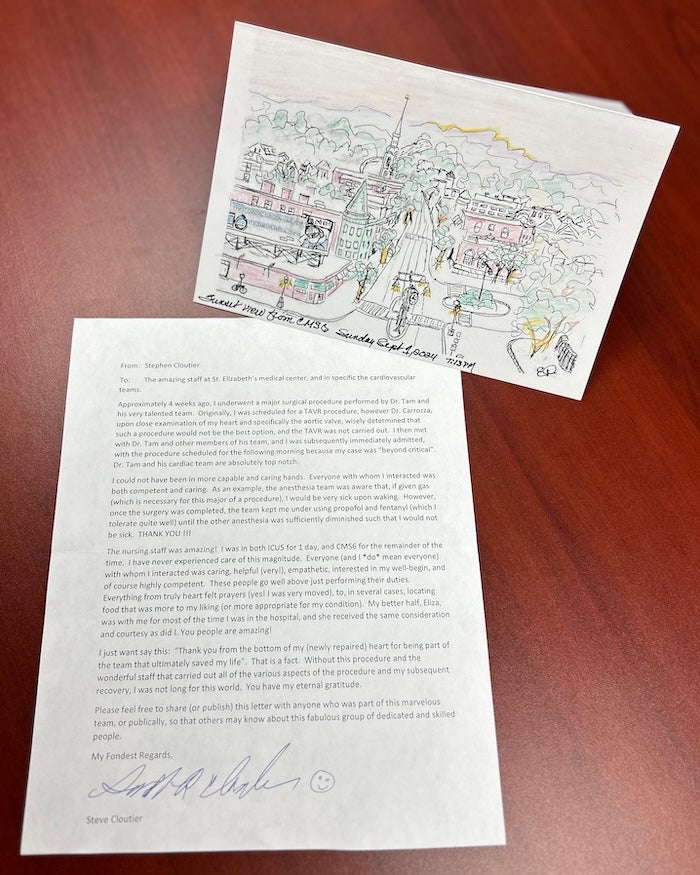 Sunset view from CMS6 Sunday Sept 1, 2024 7:13 PM
From: Stephen Cloutier
To: The amazing staff at St. Elizabeth's medical center, and in specific the cardiovascular
teams.
Approximately 4 weeks ago, I underwent a major surgical procedure performed by Dr. Tam and
his very talented team. Originally, I was scheduled for a TAVR procedure, however Dr. Carrozza,
upon close examination of my heart and specifically the aortic valve, wisely determined that
such a procedure would not be the best option, and the TAVR was not carried out. I then met
with Dr. Tam and other members of his team, and I was subsequently immediately admitted,
with the procedure scheduled for the following morning because my case was "beyond critical".
Dr. Tam and his cardiac team are absolutely top notch.
I could not have been in more capable and caring hands. Everyone with whom I interacted was
both competent and caring. As an example, the anesthesia team was aware that, if given gas
(which is necessary for this major of a procedure), I would be very sick upon waking. However,
once the surgery was completed, the team kept me under using propofol and fentanyl (which I
tolerate quite well) until the other anesthesia was sufficiently diminished such that I would not
be sick. THANK YOU !!!
The nursing staff was amazing! I was in both ICU5 for 1 day, and CMS6 for the remainder of the
time. I have never experienced care of this magnitude. Everyone (and I *do* mean everyone)
with whom I interacted was caring, helpful (very!), empathetic, interested in my well-begin, and
of course highly competent. These people go well above just performing their duties.
Everything from truly heart felt prayers (yes! I was very moved), to, in several cases, locating
food that was more to my liking (or more appropriate for my condition). My better half, Eliza,
was with me for most of the time I was in the hospital, and she received the same consideration
and courtesy as did I. You people are amazing!
I just want say this: "Thank you from the bottom of my (newly repaired) heart for being part of
the team that ultimately saved my life". That is a fact. Without this procedure and the
wonderful staff that carried out all of the various aspects of the procedure and my subsequent
recovery, I was not long for this world. You have my eternal gratitude.
Please feel free to share (or publish) this letter with anyone who was part of this marvelous
team, or publically, so that others may know about this fabulous group of dedicated and skilled
people.
My Fondest Regards,
Steve Cloutier